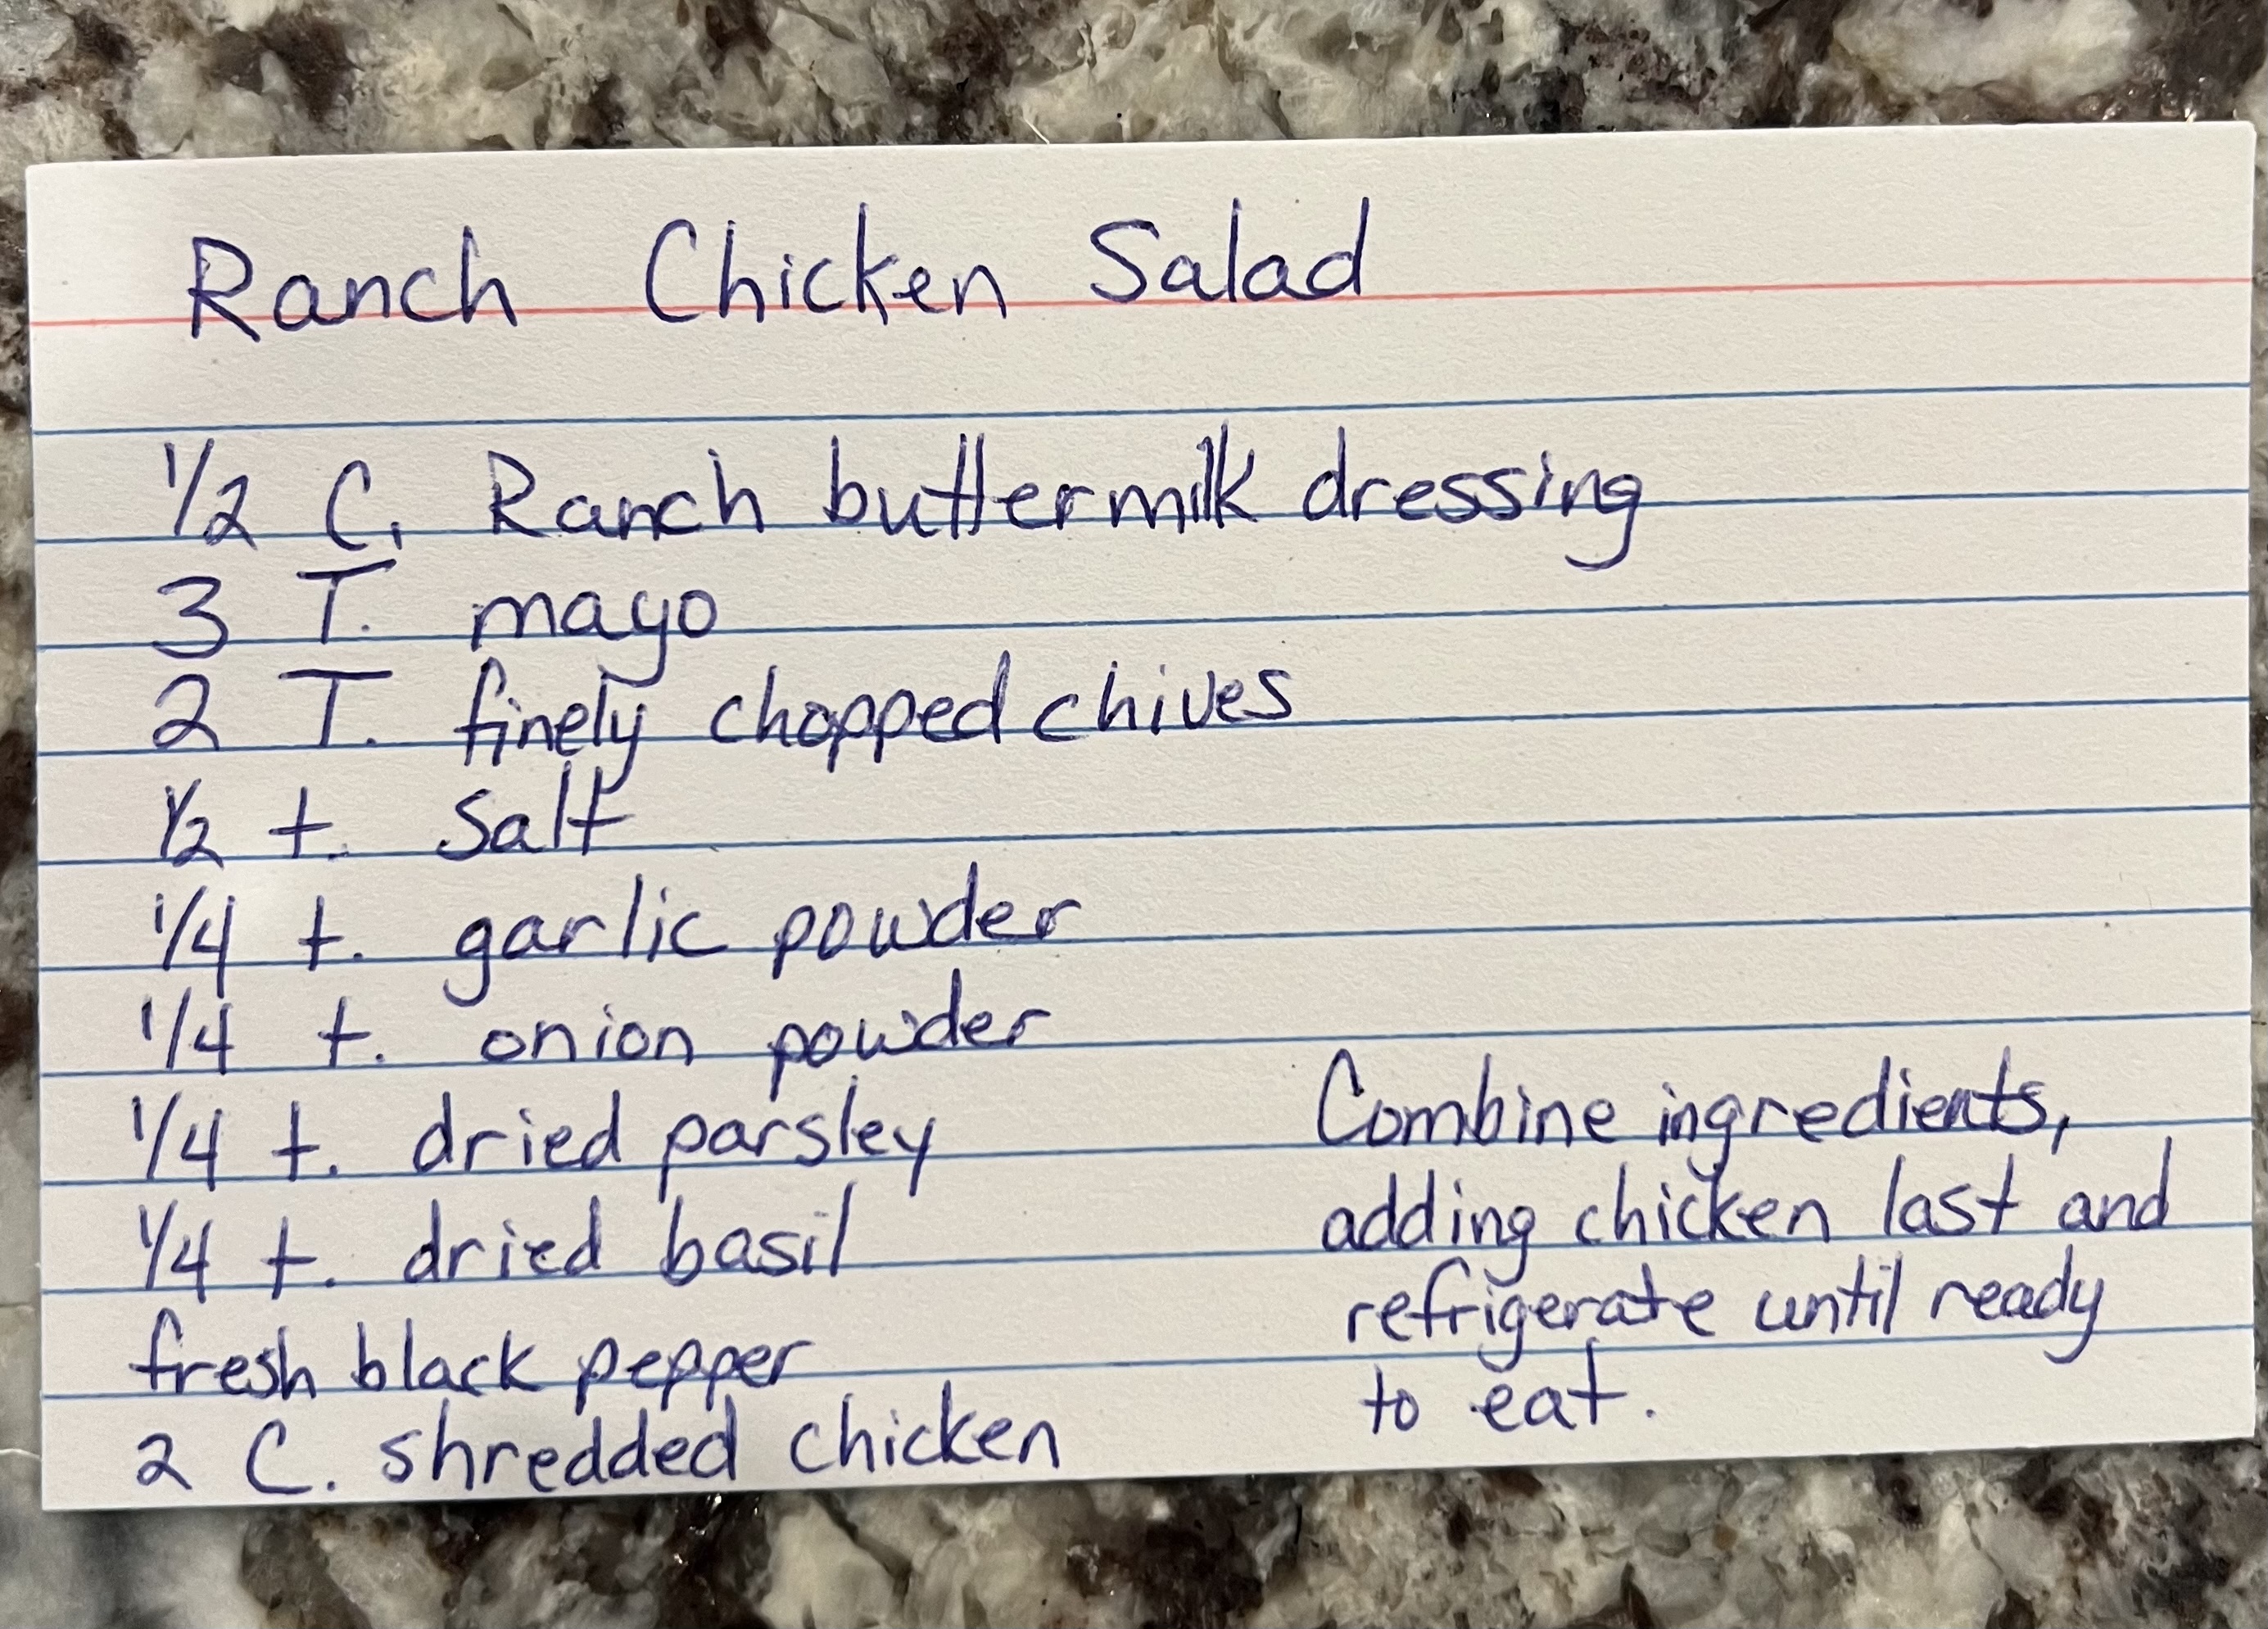 Ranch Chicken Salad
1/2 C. Ranch buttermilk dressing
3 T. mayo
2 T. finely chopped chives
1/2 t. salt
1/4 t. garlic powder
1/4 t. onion powder
1/4 t. dried parsley
1/4 t. dried basil
fresh black pepper
2 C. shredded chicken
Combine ingredients,
adding chicken last and
refrigerate until ready
to eat.